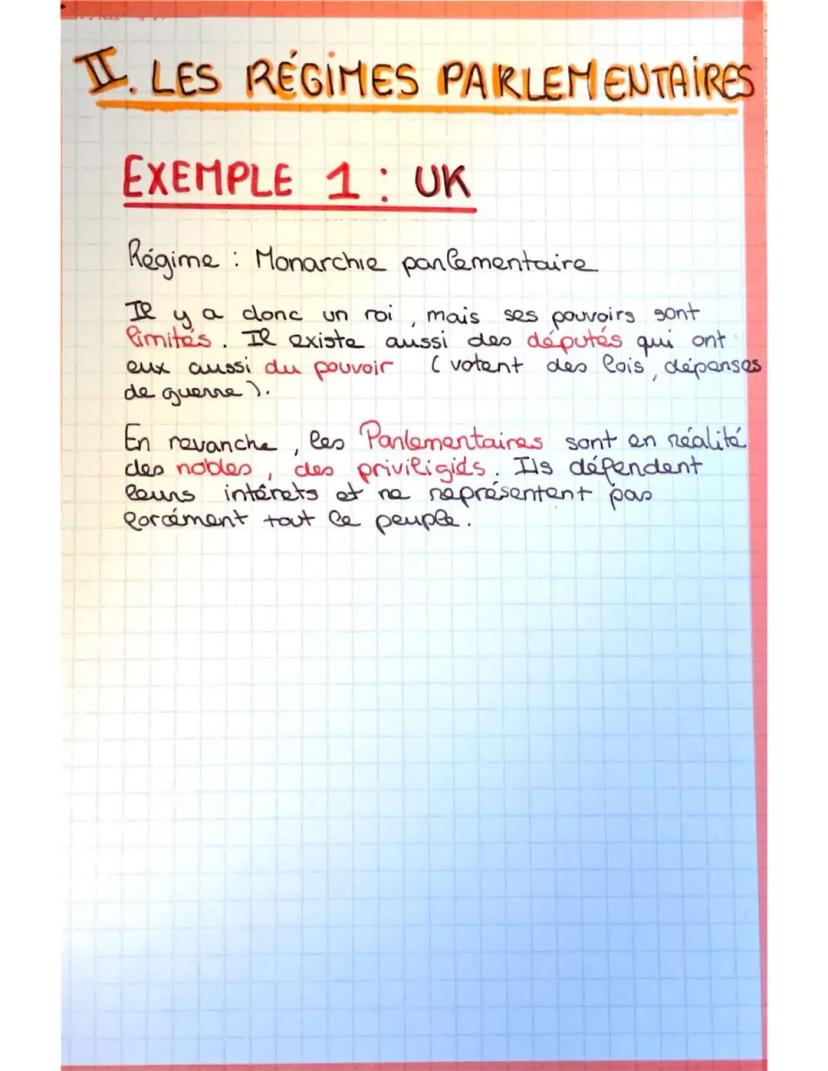 II. LES RÉGIMES PARLEMENTAIRES
EXEMPLE 1 : UK
Régime : Monarchie parlementaire
Il y a donc un roi, mais ses pouvoirs sont
limités. Il existe aussi des députés qui ont
eux aussi du pouvoir (votent des lois, dépenses
de guerre).
En revanche, les Parlementaires sont en réalité
des nobles, des priviligids. Ils défendent
leurs intérets et ne représentent pas
forcément tout le peuple.